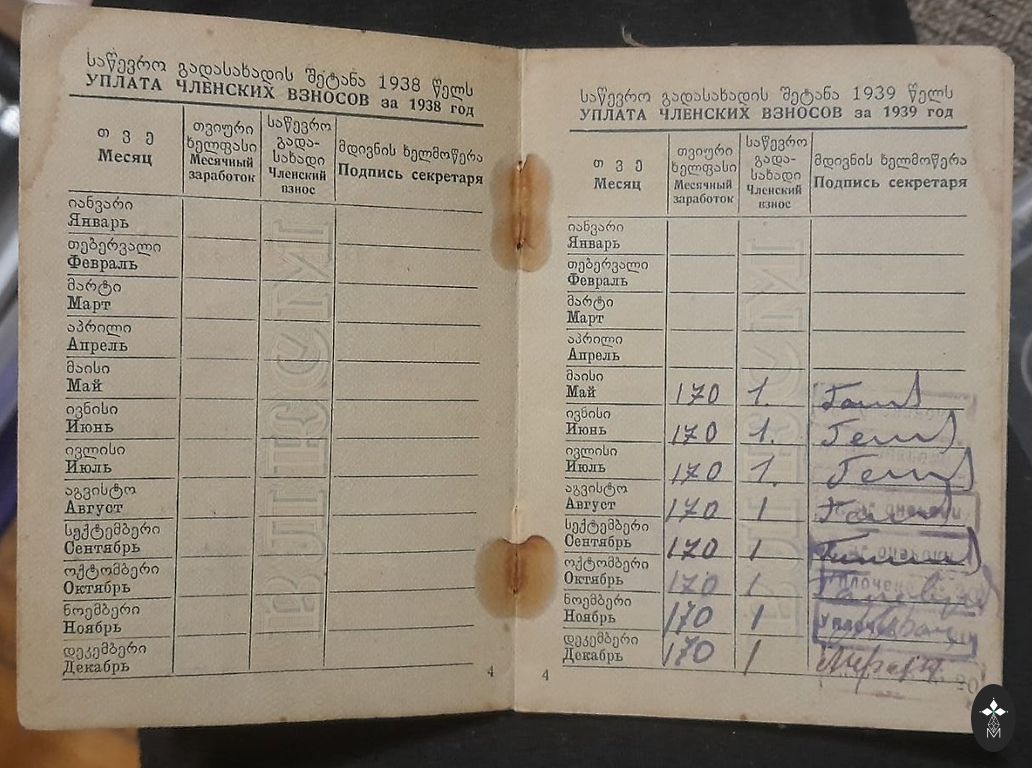 საწევრო გადასახადის შეტანა 1938 წელს
УПЛАТА ЧЛЕНСКИХ ВЗНОСОВ за 1938 год
თ ვ ე
Месяц
თვიური
ხელფასი
Месячный
заработок
საწევრო
გადა-
სახადი
Членский
взнос
მდივნის ხელმოწერა
Подпись секретаря
იანვარი
Январь
თებერვალი
Февраль
მარტი
Март
აპრილი
Апрель
მაისი
Май
ივნისი
Июнь
ივლისი
Июль
აგვისტო
Август
სექტემბერი
Сентябрь
ოქტომბერი
Октябрь
ნოემბერი
Ноябрь
დეკემბერი
Декабрь
4
საწევრო გადასახადის შეტანა 1939 წელს
УПЛАТА ЧЛЕНСКИХ ВЗНОСОВ за 1939 год
თ ვ ე
Месяц
თვიური
ხელფასი
Месячный
заработок
საწევრო
გადა-
სახადი
Членский
взнос
მდივნის ხელმოწერა
Подпись секретаря
იანვარი
Январь
თებერვალი
Февраль
მარტი
Март
აპრილი
Апрель
მაისი
Май 170 1.
ივნისი
Июнь 170 1.
ივლისი
Июль 170 1.
აგვისტო
Август 170 1
სექტემბერი
Сентябрь 170 1
ოქტომბერი
Октябрь 170 1
ნოემბერი
Ноябрь 170 1
დეკემბერი
Декабрь 170 1
4
ВЛКСМ
M